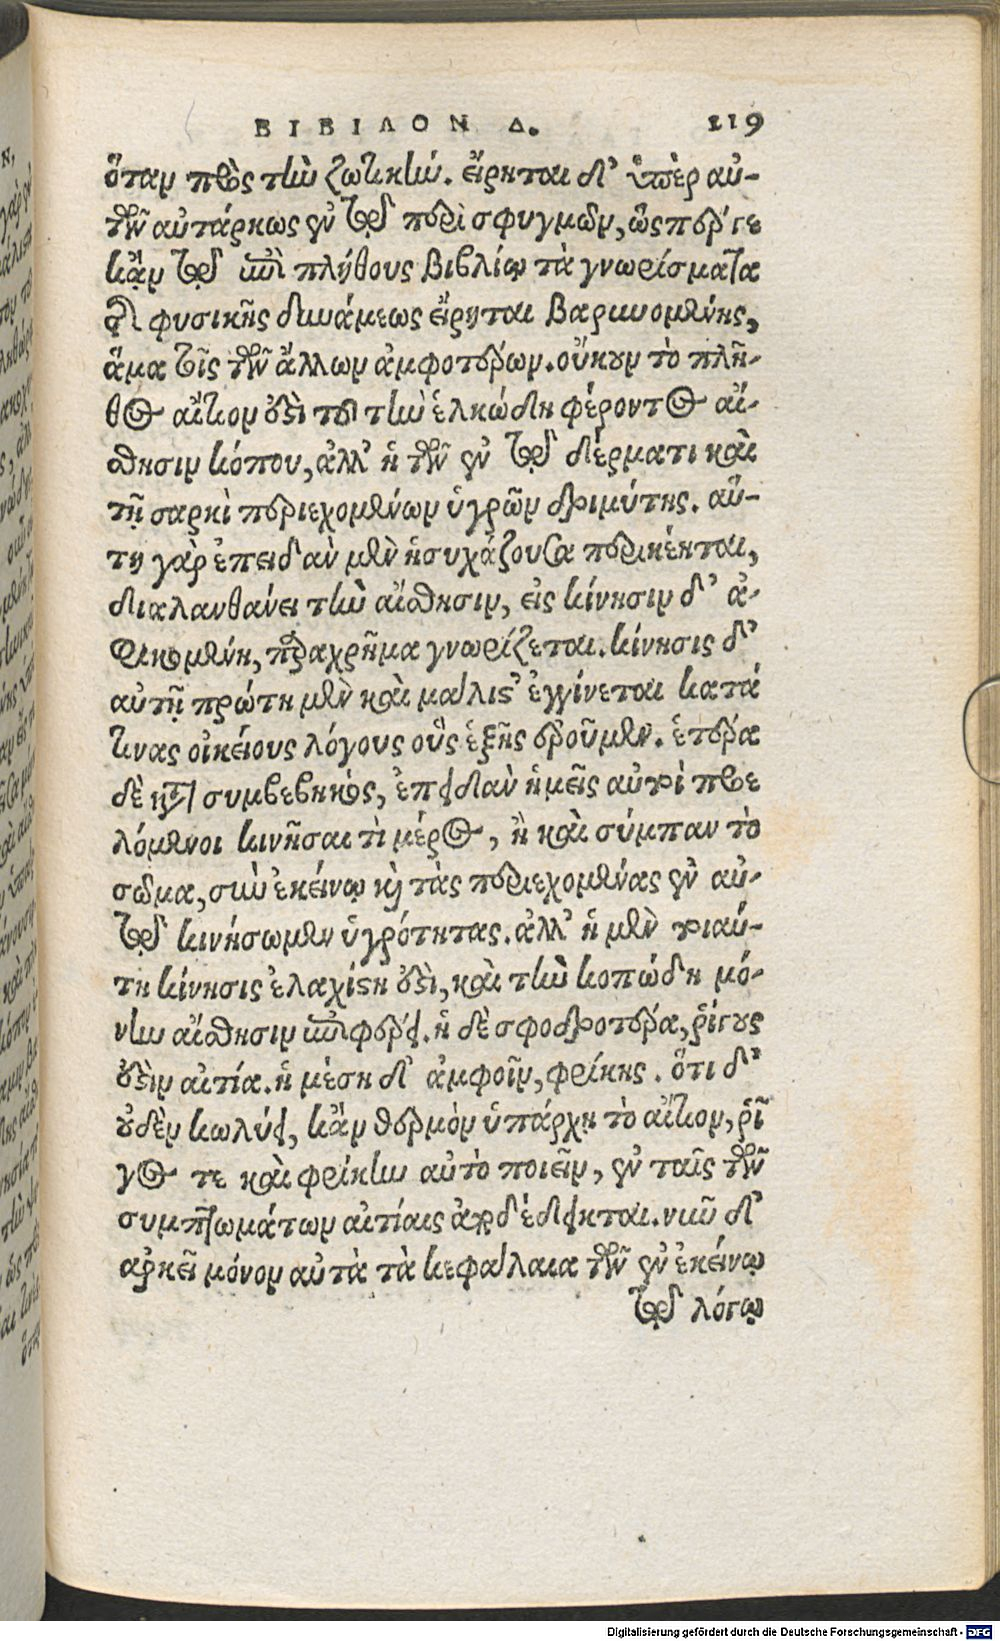 ΒΙΒΙΛΟΝ Δ. 119
ὅταν πρὸς τὴν ζωτικήν. εἴρηται δ' ὑπὲρ αὐ-
τῶν αὐτάρκως ἐν τῷ περὶ σφυγμῶν, ὥσπερ γε
κἀν τῷ περὶ πλήθους βιβλίῳ τὰ γνωρίσματα
τῆς φυσικῆς δυνάμεως εἴρηται βαρυνομένης,
ἅμα τοῖς τῶν ἄλλων ἀμφοτέρων. οὔκουν τὸ πλῆ-
θος αἴτιον ἐστὶ τοῦ τὴν ἑλκώδη φέροντος αἴ-
σθησιν κόπου, ἀλλ' ἡ τῶν ἐν τῷ δέρματι καὶ
τῇ σαρκὶ περιεχομένων ὑγρῶν δριμύτης. αὕ-
τη γὰρ ἐπειδὰν μὲν ἡσυχάζουσα περικέηται,
διαλανθάνει τὴν αἴσθησιν, εἰς κίνησιν δ' ἀ-
φικομένη, παραχρῆμα γνωρίζεται. κίνησις δ'
αὐτῇ πρώτη μὲν καὶ μάλιστ' ἐγγίνεται κατά
τινας οἰκείους λόγους οὓς ἑξῆς ἐροῦμεν. ἑτέρα
δὲ κατὰ συμβεβηκὸς, ἐπειδὰν ἡμεῖς αὐτοὶ προε
λόμενοι κινῆσαι τὶ μέρος, ἢ καὶ σύμπαν τὸ
σῶμα, σὺν ἐκείνῳ καὶ τὰς περιεχομένας ἐν αὐ-
τῷ κινήσωμεν ὑγρότητας. ἀλλ' ἡ μὲν τοιαύ-
τη κίνησις ἐλαχίστη ἐστὶ, καὶ τὴν κοπώδη μό-
νην αἴσθησιν ἐπιφέρει. ἡ δὲ σφοδροτέρα, ῥίγους
ἐστὶν αἰτία. ἡ μέση δ' ἀμφοῖν, φρίκης. ὅτι δ'
οὐδὲν κωλύει, κἂν θερμὸν ὑπάρχῃ τὸ αἴτιον, ῥῖ
γος τε καὶ φρίκην αὐτὸ ποιεῖν, ἐν ταῖς τῶν
συμπτωμάτων αἰτίαις ἀποδέδεικται. νυνὶ δ'
ἀρκεῖ μόνον αὐτὰ τὰ κεφάλαια τῶν ἐν ἐκείνῳ
τῷ λόγῳ
Digitalisierung gefördert durch die Deutsche Forschungsgemeinschaft - DFG